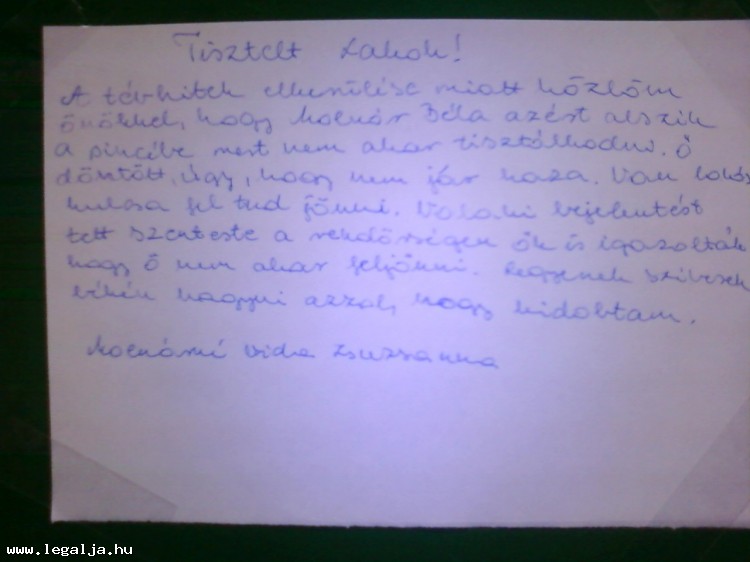 Tisztelt Lakók!
A tévhitek elkerülése miatt közlöm
önökkel, hogy Molnár Béla azért alszik
a pincébe mert nem akar tisztálkodni. Ő
döntött, úgy, hogy nem jár haza. Van lakás
kulcsa fel tud jönni. Valaki bejelentést
tett szenteste a rendőrségen ők is igazolták
hogy ő nem akar feljönni. Legyenek szívesek
békén hagyni azzal, hogy kidobtam.
Molnárné Vida Zsuzsanna
www.legalja.hu